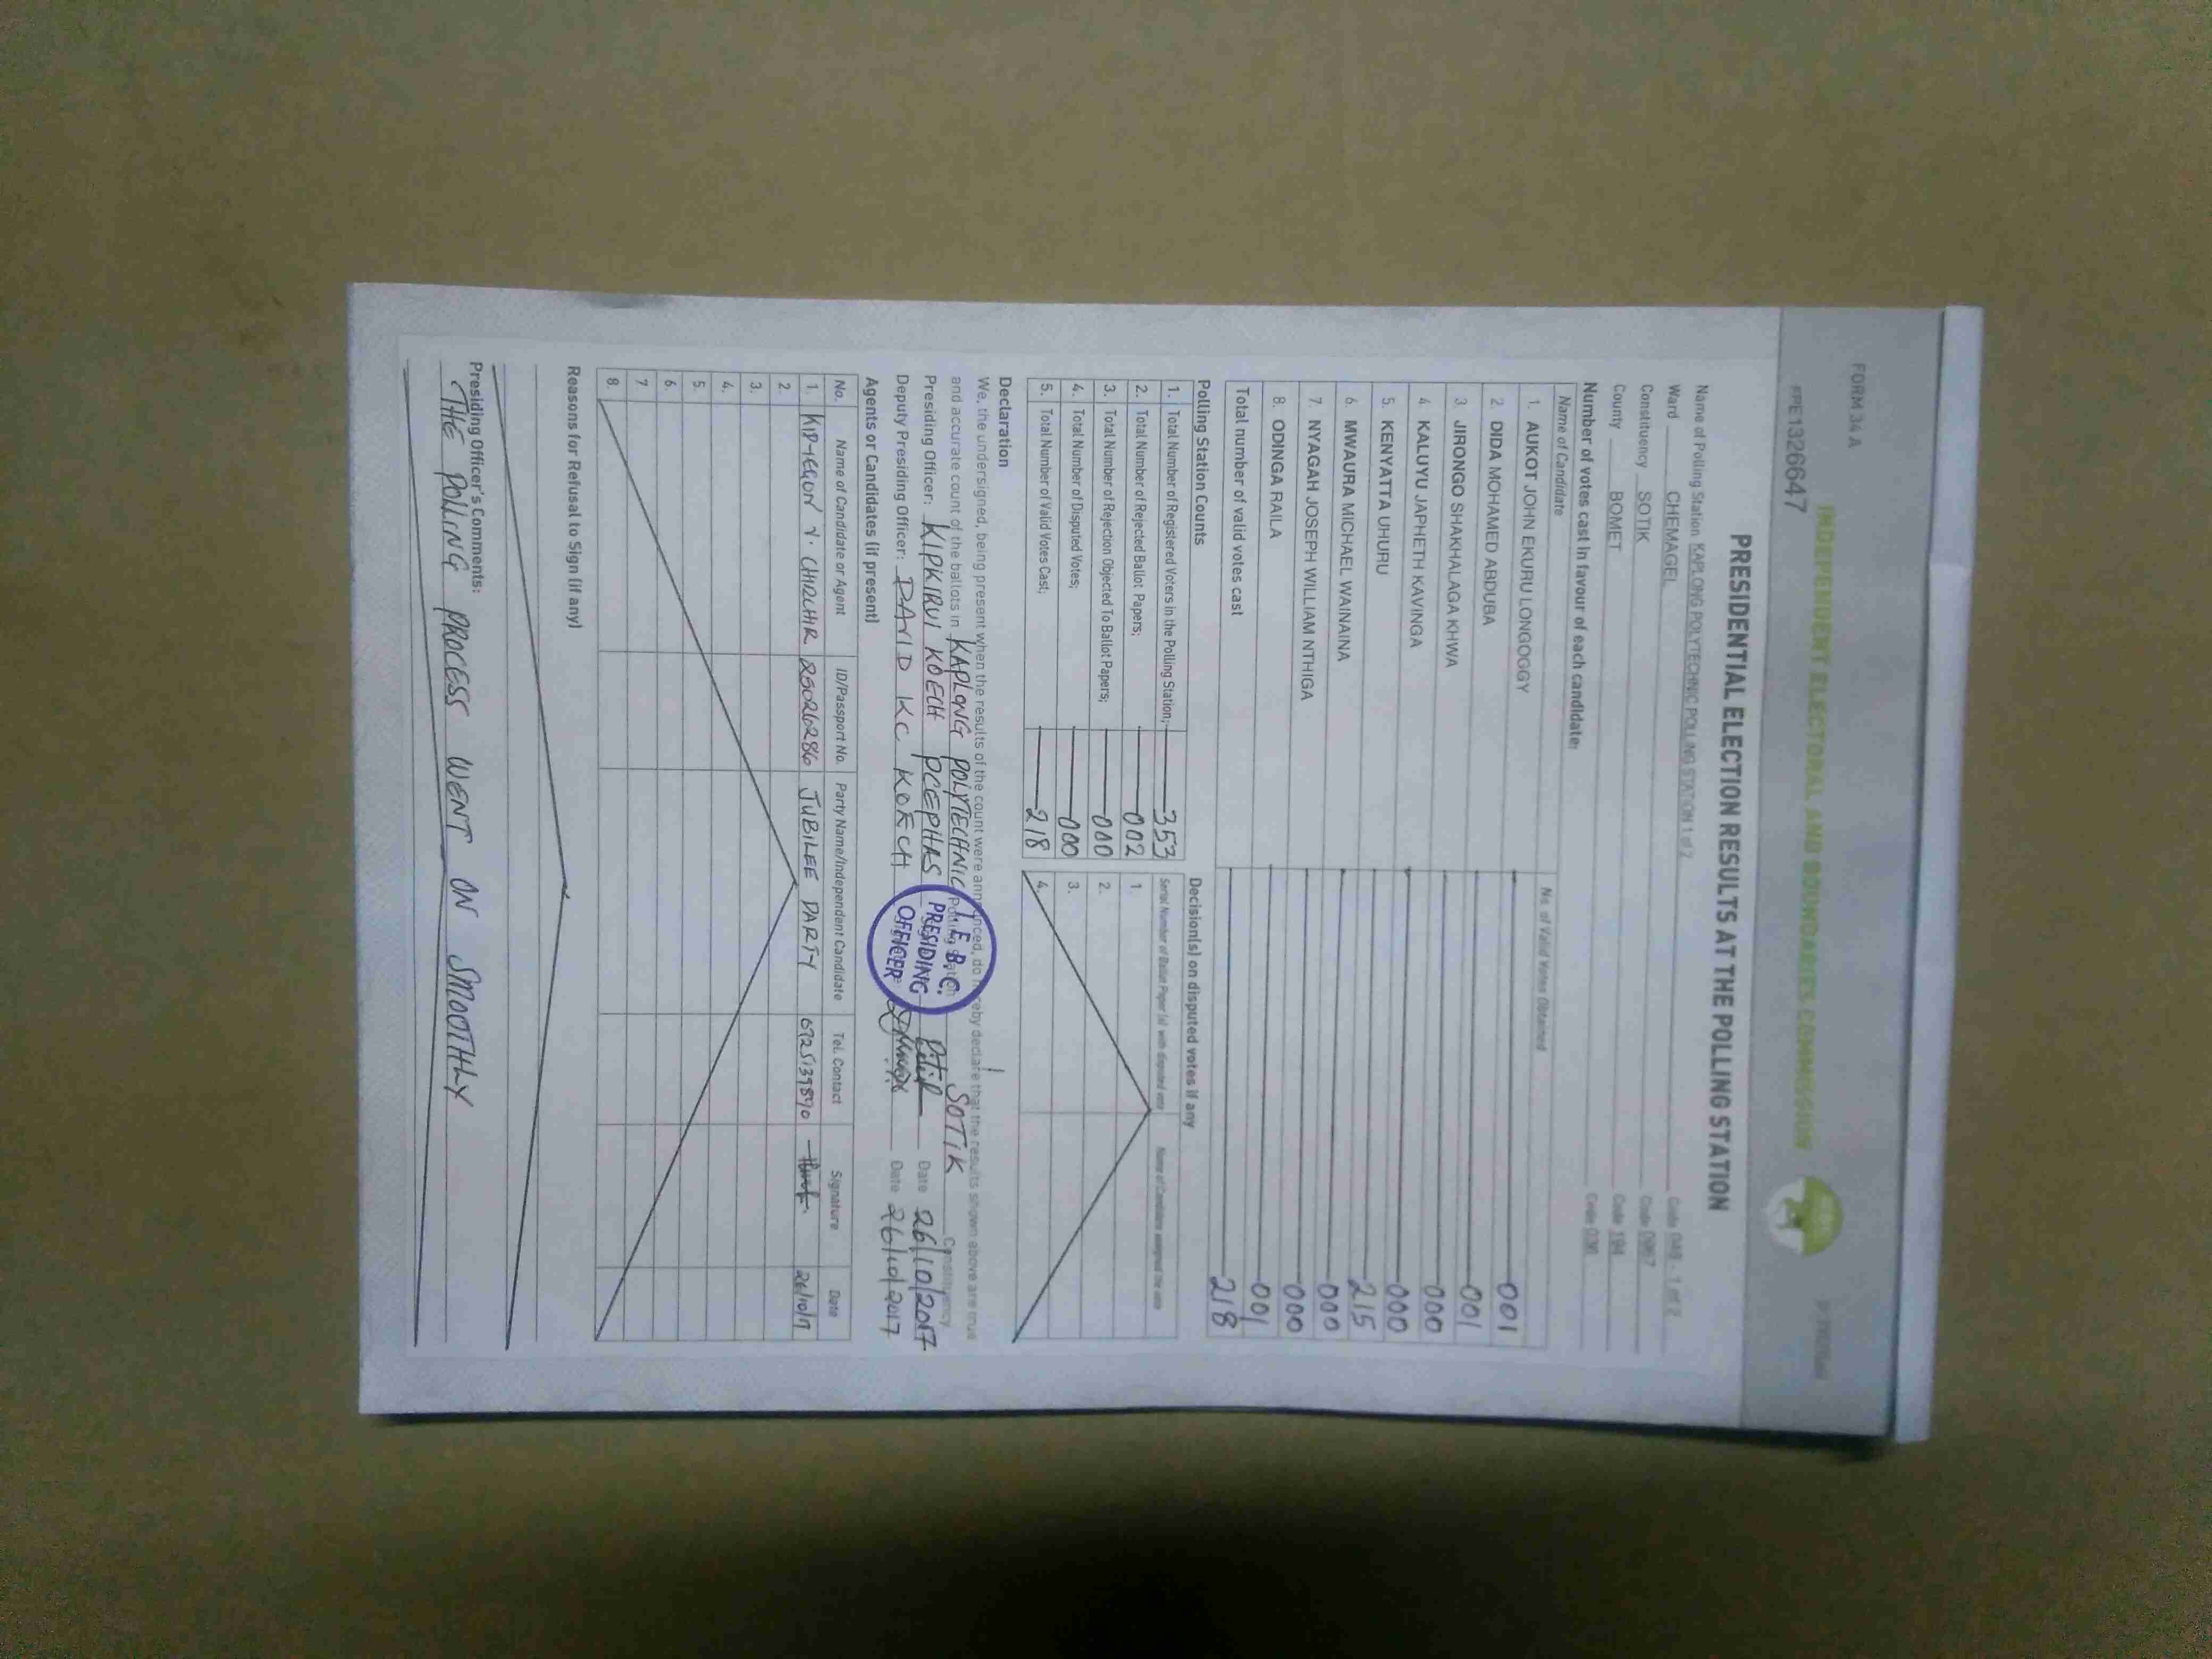 FORM 34 A
INDEPENDENT ELECTORAL AND BOUNDARIES COMMISSION
PPE1326647
PRESIDENTIAL ELECTION RESULTS AT THE POLLING STATION
Name of Polling Station KAPLONG POLYTECHNIC POLLING STATION 1 of 2 Code 049 - 1 of 2
Ward CHEMAGEL Code 0967
Constituency SOTIK Code 194
County BOMET Code 036
Number of votes cast in favour of each candidate:
Name of Candidate No. of Valid Votes Obtained
1. AUKOT JOHN EKURU LONGOGGY 001
2. DIDA MOHAMED ABDUBA 001
3. JIRONGO SHAKHALAGA KHWA 000
4. KALUYU JAPHETH KAVINGA 000
5. KENYATTA UHURU 215
6. MWAURA MICHAEL WAINAINA 000
7. NYAGAH JOSEPH WILLIAM NTHIGA 000
8. ODINGA RAILA 001
Total number of valid votes cast 218
Polling Station Counts
1. Total Number of Registered Voters in the Polling Station; 353
2. Total Number of Rejected Ballot Papers; 002
3. Total Number of Rejection Objected To Ballot Papers; 000
4. Total Number of Disputed Votes; 000
5. Total Number of Valid Votes Cast; 218
Decision(s) on disputed votes if any
Serial Number of Ballot Paper (s) with disputed vote Name of Candidate assigned the vote
1
2.
3.
4.
Declaration
We, the undersigned, being present when the results of the count were announced, do hereby declare that the results shown above are true
and accurate count of the ballots in KAPLONG POLYTECHNIC Polling Station SOTIK Constituency
Presiding Officer: KIPKIRUI KOECH DCEPHAS Date 26/10/2017
Deputy Presiding Officer: DAVID KC KOECH Date 26/10/2017
I.E.B.C.
PRESIDING
OFFICER
Agents or Candidates (if present)
No. Name of Candidate or Agent ID/Passport No. Party Name/Independent Candidate Tel. Contact Signature Date
1. CHIRCHIR 25026286 JUBILEE PARTY 0725139890 26/10/17
2.
3.
4.
5.
6.
7
8.
Reasons for Refusal to Sign (if any)
Presiding Officer's Comments:
THE POLLING PROCESS WENT ON SMOOTHLY